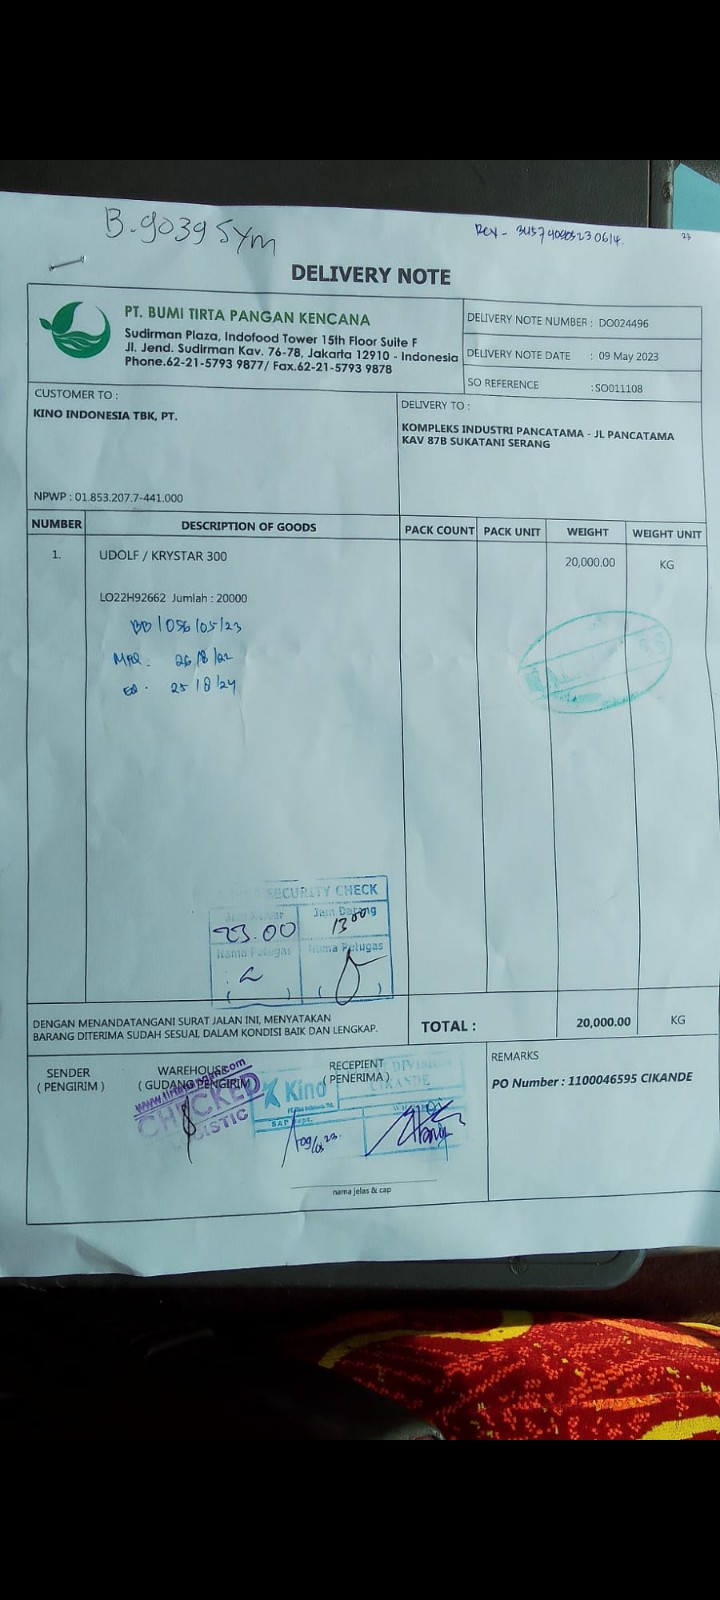 B.9039 SYM
Rcv - 345740905230614.
27
DELIVERY NOTE
PT. BUMI TIRTA PANGAN KENCANA
Sudirman Plaza, Indofood Tower 15th Floor Suite F
Jl. Jend. Sudirman Kav. 76-78, Jakarta 12910 - Indonesia
Phone.62-21-5793 9877/ Fax.62-21-5793 9878
DELIVERY NOTE NUMBER : DO024496
DELIVERY NOTE DATE : 09 May 2023
SO REFERENCE :SO011108
CUSTOMER TO :
KINO INDONESIA TBK, PT.
NPWP : 01.853.207.7-441.000
DELIVERY TO :
KOMPLEKS INDUSTRI PANCATAMA - JL PANCATAMA
KAV 87B SUKATANI SERANG
NUMBER DESCRIPTION OF GOODS PACK COUNT PACK UNIT WEIGHT WEIGHT UNIT
1. UDOLF / KRYSTAR 300 20,000.00 KG
LO22H92662 Jumlah : 20000
BB/056/05/23
26/8/22
ED. 25/8/24
SECURITY CHECK
Jam Datang
23.00 13 00
Nama Petugas Nama Petugas
DENGAN MENANDATANGANI SURAT JALAN INI, MENYATAKAN
BARANG DITERIMA SUDAH SESUAI, DALAM KONDISI BAIK DAN LENGKAP.
TOTAL : 20,000.00 KG
SENDER
( PENGIRIM )
WAREHOUSE
( GUDANG PENGIRIM
RECEPIENT
( PENERIMA )
CHECKED
LOGISTIC
Kino
DIVISI
CIKANDE
09/05 23
nama jelas & cap
REMARKS
PO Number : 1100046595 CIKANDE